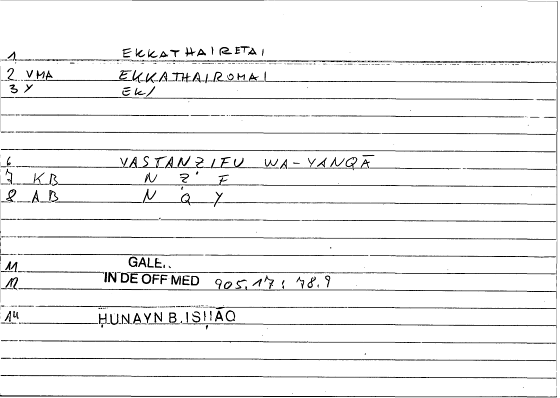 1 EKKATHAIRETAI
2 VMA EKKATHAIROMAI
3 Y EK/
6 YASTANZIFU WA-YANQĀ
7 KB N Z F
8 AB N Q Y
11 GALE..
12 IN DE OFF MED 905,17 : 78.9
14 ḤUNAYN B. ISḤĀQ